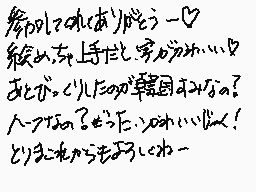 参加してくれてありがとうー♡
絵めっちゃ上手だし、字がかわいい♡
あとびっくりしたのが韓国すみなの?
ハーフなの?ぜったいかわいいじゃん!
とりまこれからもよろしくねー